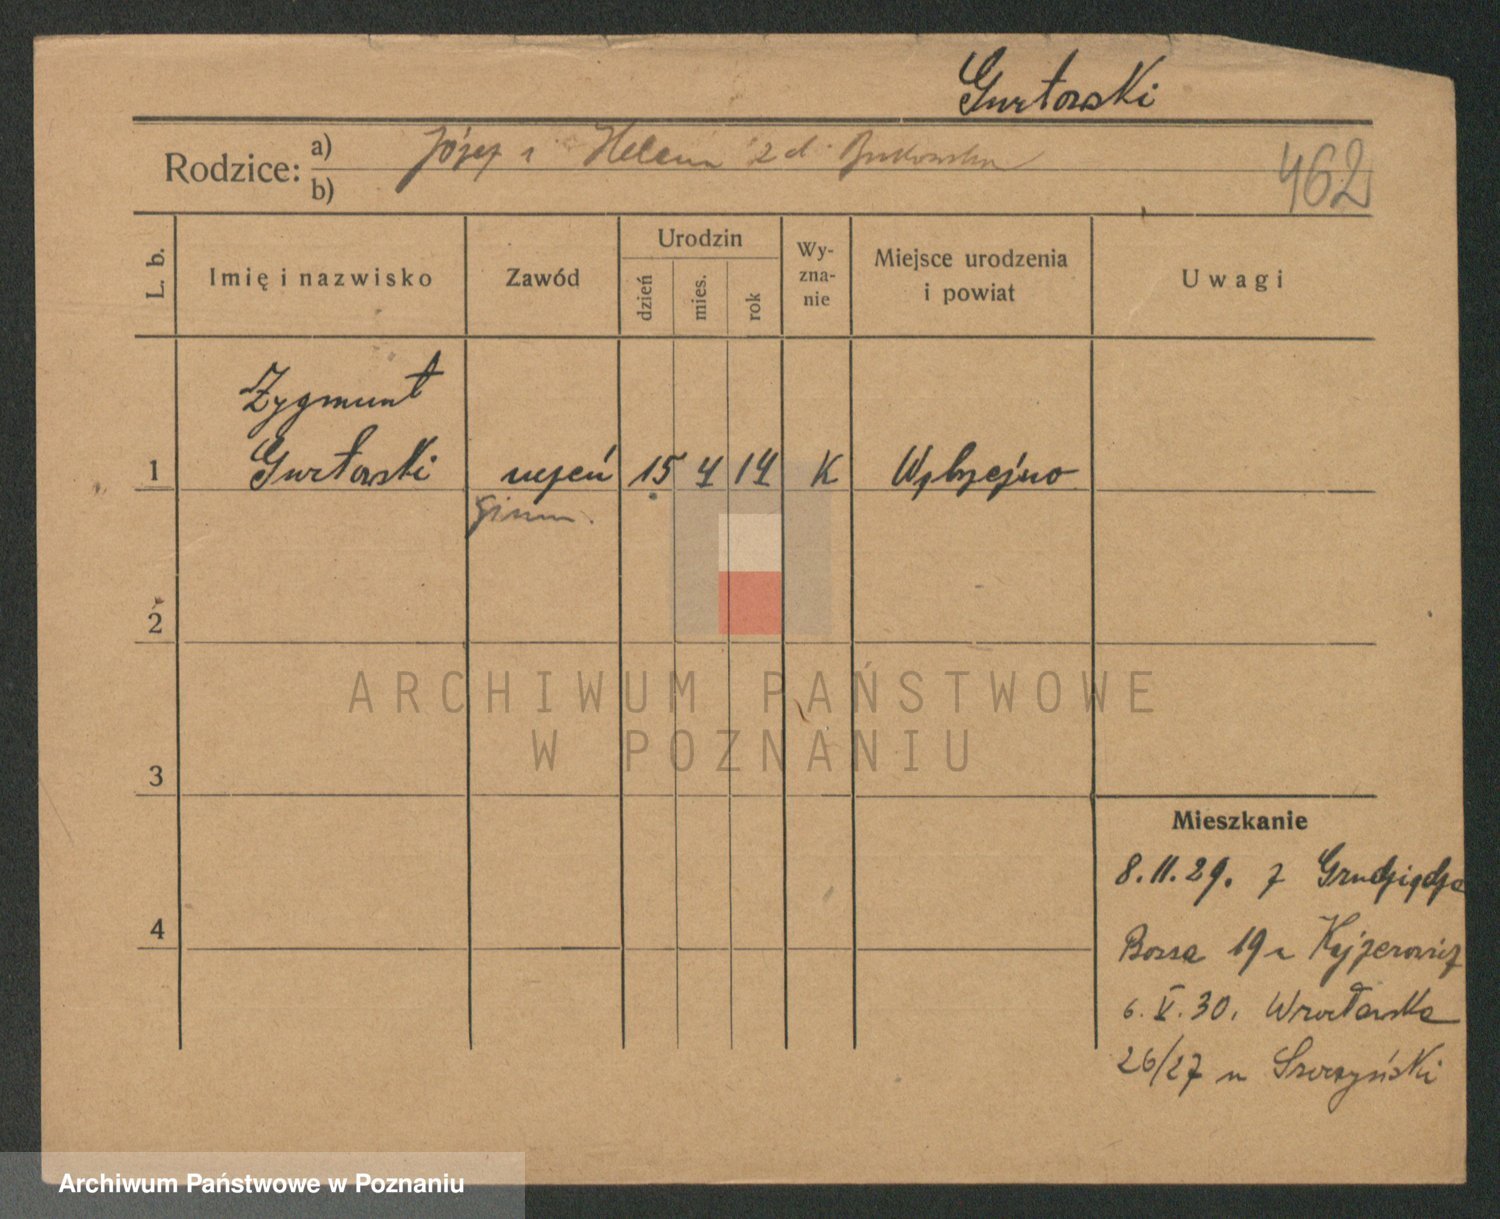 Gurtowski
Rodzice: a) Józef i Helena z d. Bukowska
b)
462
L. b.
Imię i nazwisko
Zawód
Urodzin
dzień
mies.
rok
Wy-
zna-
nie
Miejsce urodzenia
i powiat
Uwagi
Zygmunt
1 Gurtowski uczeń 15 4 14 K Wąbrzeźno
gimn.
2
3
4
ARCHIWUM PAŃSTWOWE
W POZNANIU
Mieszkanie
8.11.29. z Grudziądza
19
6.V.30. Wrocławska
26/27 u
Archiwum Państwowe w Poznaniu